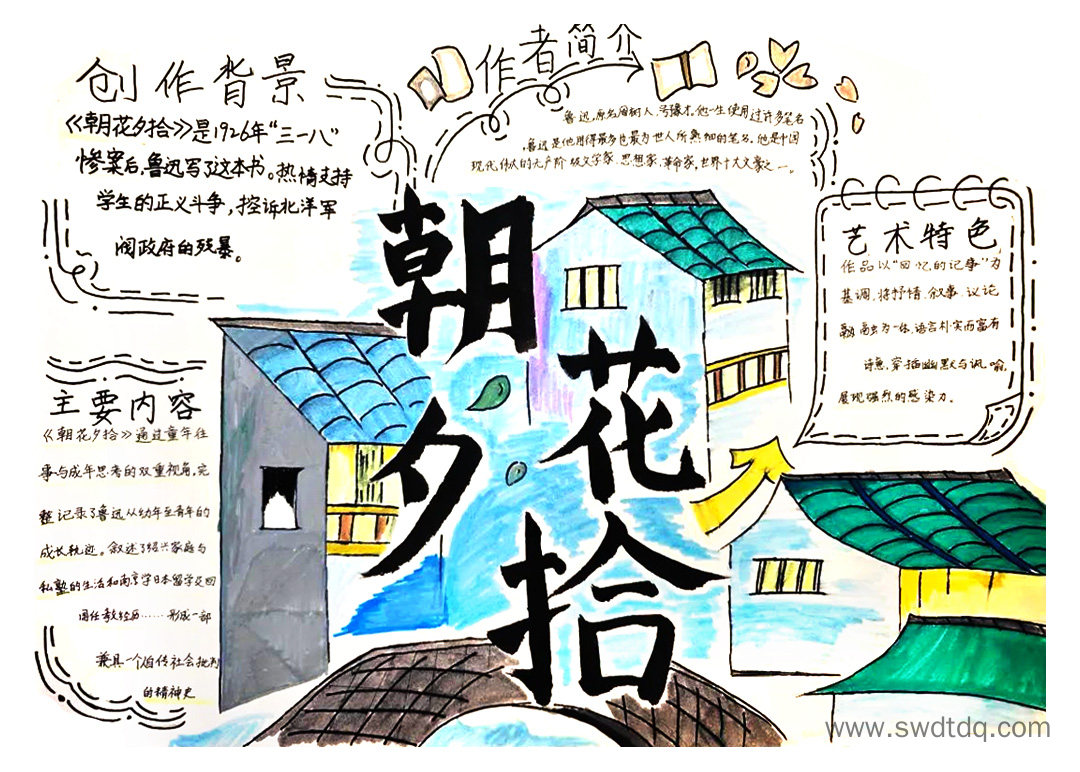 创作背景
《朝花夕拾》是1926年“三一八”
惨案后,鲁迅写了这本书。热情支持
学生的正义斗争,控诉北洋军
阀政府的残暴。
作者简介
鲁迅,原名周树人,号豫才。他一生使用过许多笔名
,鲁迅是他用得最多也最为世人所熟知的笔名。他是中国
现代伟大的无产阶级文学家、思想家、革命家,世界十大文豪之一。
朝花夕拾
艺术特色
作品以“回忆的记事”为
基调,将抒情、叙事、议论
融为一体,语言朴实而富有
诗意,穿插幽默与讽喻,
展现强烈的感染力。
主要内容
《朝花夕拾》通过童年往
事与成年思考的双重视角,完
整记录了鲁迅从幼年至青年的
成长轨迹。叙述了绍兴家庭与
私塾的生活和南京学日本留学及回
国任教经历……形成一部
兼具一个自传社会批判
的精神史
www.swdtdq.com